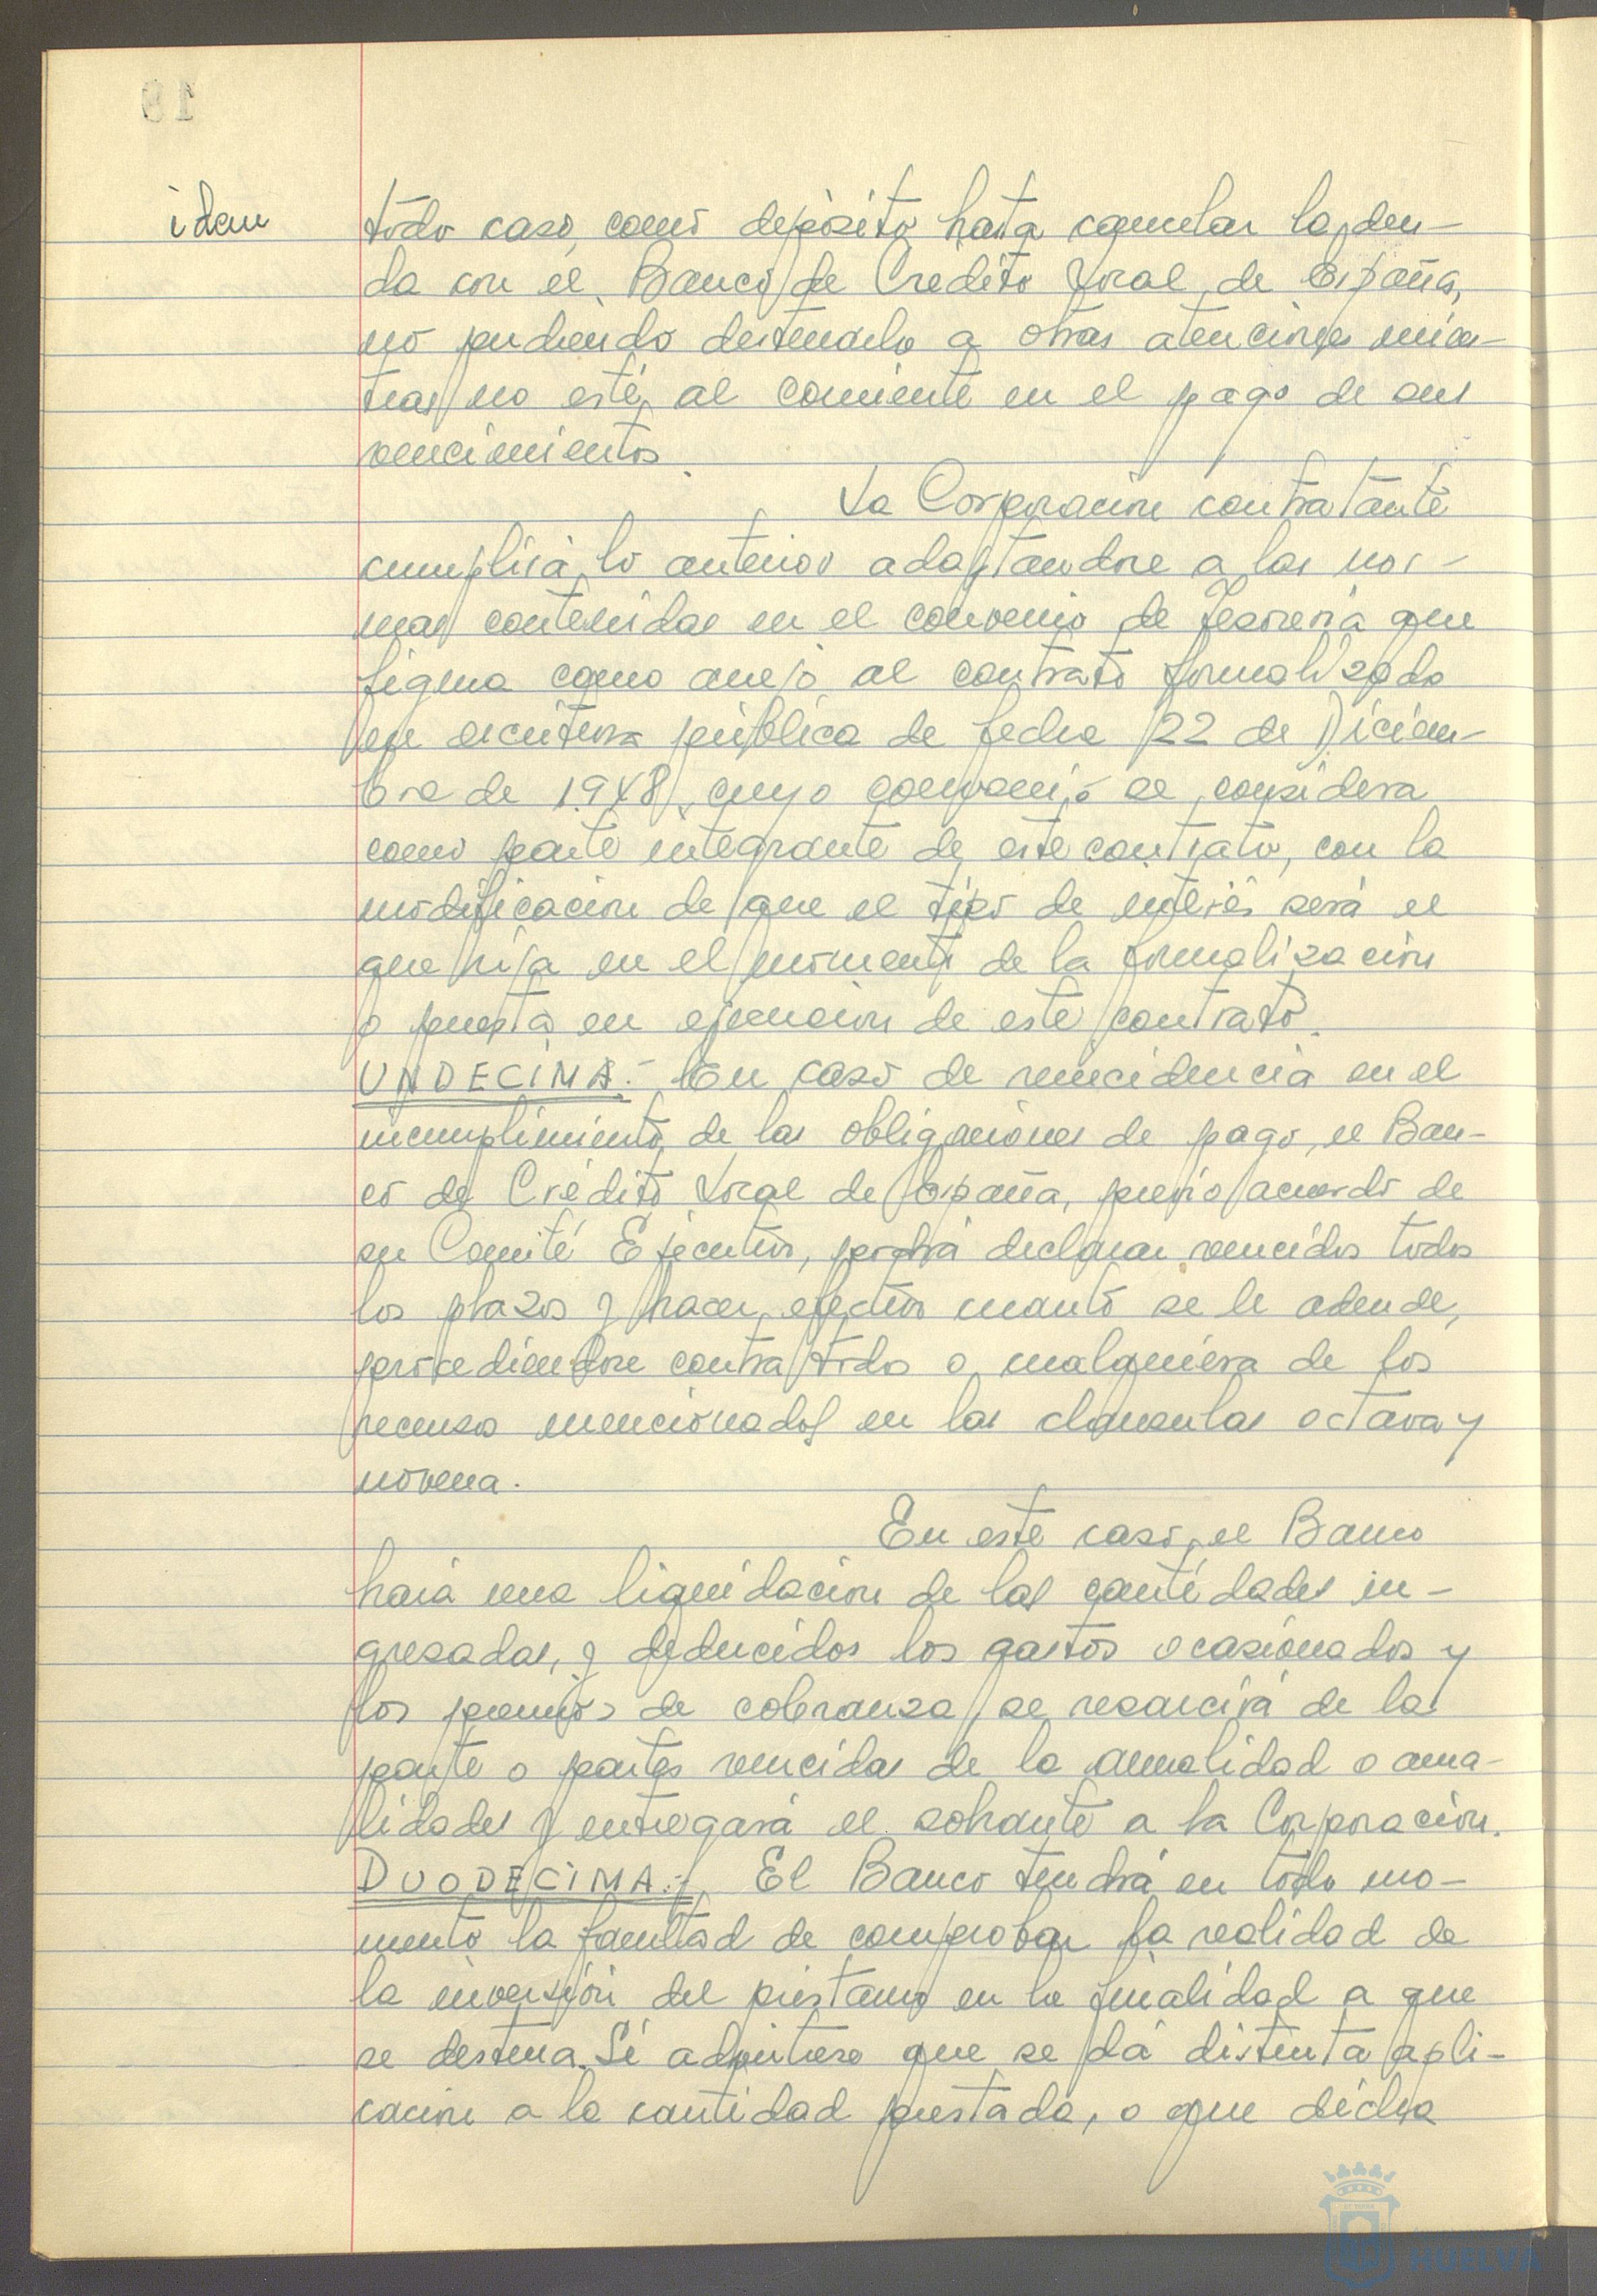 idem
todo caso, como depósito hasta cancelar la deu-
da con el Banco de Crédito Local de España,
no pudiendo destinarlo a otras atenciones mien-
tras no esté al corriente en el pago de sus
vencimientos.
La Corporación contratante
cumplirá lo anterior adaptandose a las nor-
mas contenidas en el convenio de Tesorería que
figura como anejo al contrato formalizado
en escritura pública de fecha 22 de Diciem-
bre de 1948, cuyo convenio se considera
como parte integrante de este contrato, con la
modificación de que el tipo de interés será el
que rija en el momento de la formalización
o puesta en ejecución de este contrato.
UNDECIMA.- En caso de reincidencia en el
incumplimiento de las obligaciones de pago, el Ban-
co de Crédito Local de España, previo acuerdo de
su Comité Ejecutivo, podrá declarar vencidos todos
los plazos y hacer efectivo cuanto se le adeude,
procediendose contra todos o cualquiera de los
recursos mencionados en las clausulas octava y
novena.
En este caso, el Banco
hará una liquidación de las cantidades in-
gresadas, y deducidos los gastos ocasionados y
los premios de cobranza, se resarcirá de la
parte o partes vencidas de la anualidad o anua-
lidades y entregará el sobrante a la Corporación.
DUODECIMA.- El Banco tendrá en todo mo-
mento la facultad de comprobar la realidad de
la inversión del préstamo en la finalidad a que
se destina. Si advirtiese que se dá distinta apli-
cación a la cantidad prestada, o que dicha
HUELVA